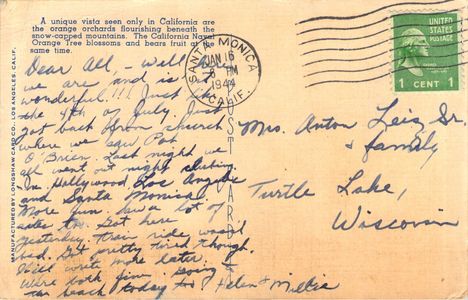 A unique vista seen only in California are
the orange orchards flourishing beneath the
snow-capped mountains. The California Navel
Orange Tree blossoms and bears fruit at the
same time.
Dear All, - Well here
we are and is it
wonderful!!! Just like
the 4th of July. Just
got back from church
where we saw Pat
O'Brien. Last night we
all went out night clubing.
In Hollywood, Los Angeles
and Santa Monica.
More fun. Saw a lot of
Got here
yesterday, train ride wasn't
bad. Got pretty tired though.
Will write more later.
We're both fine, going to
the beach today
Helen & Millie
SANTA MONICA
JAN 16
6 PM
1944
CALIF.
UNITED STATES
POSTAGE
1 CENT 1
POST CARD
Mrs. Anton Leis Sr.
& family
Turtle Lake,
Wisconsin
MANUFACTURED BY LONGSHAW CARD CO., LOS ANGELES, CALIF.